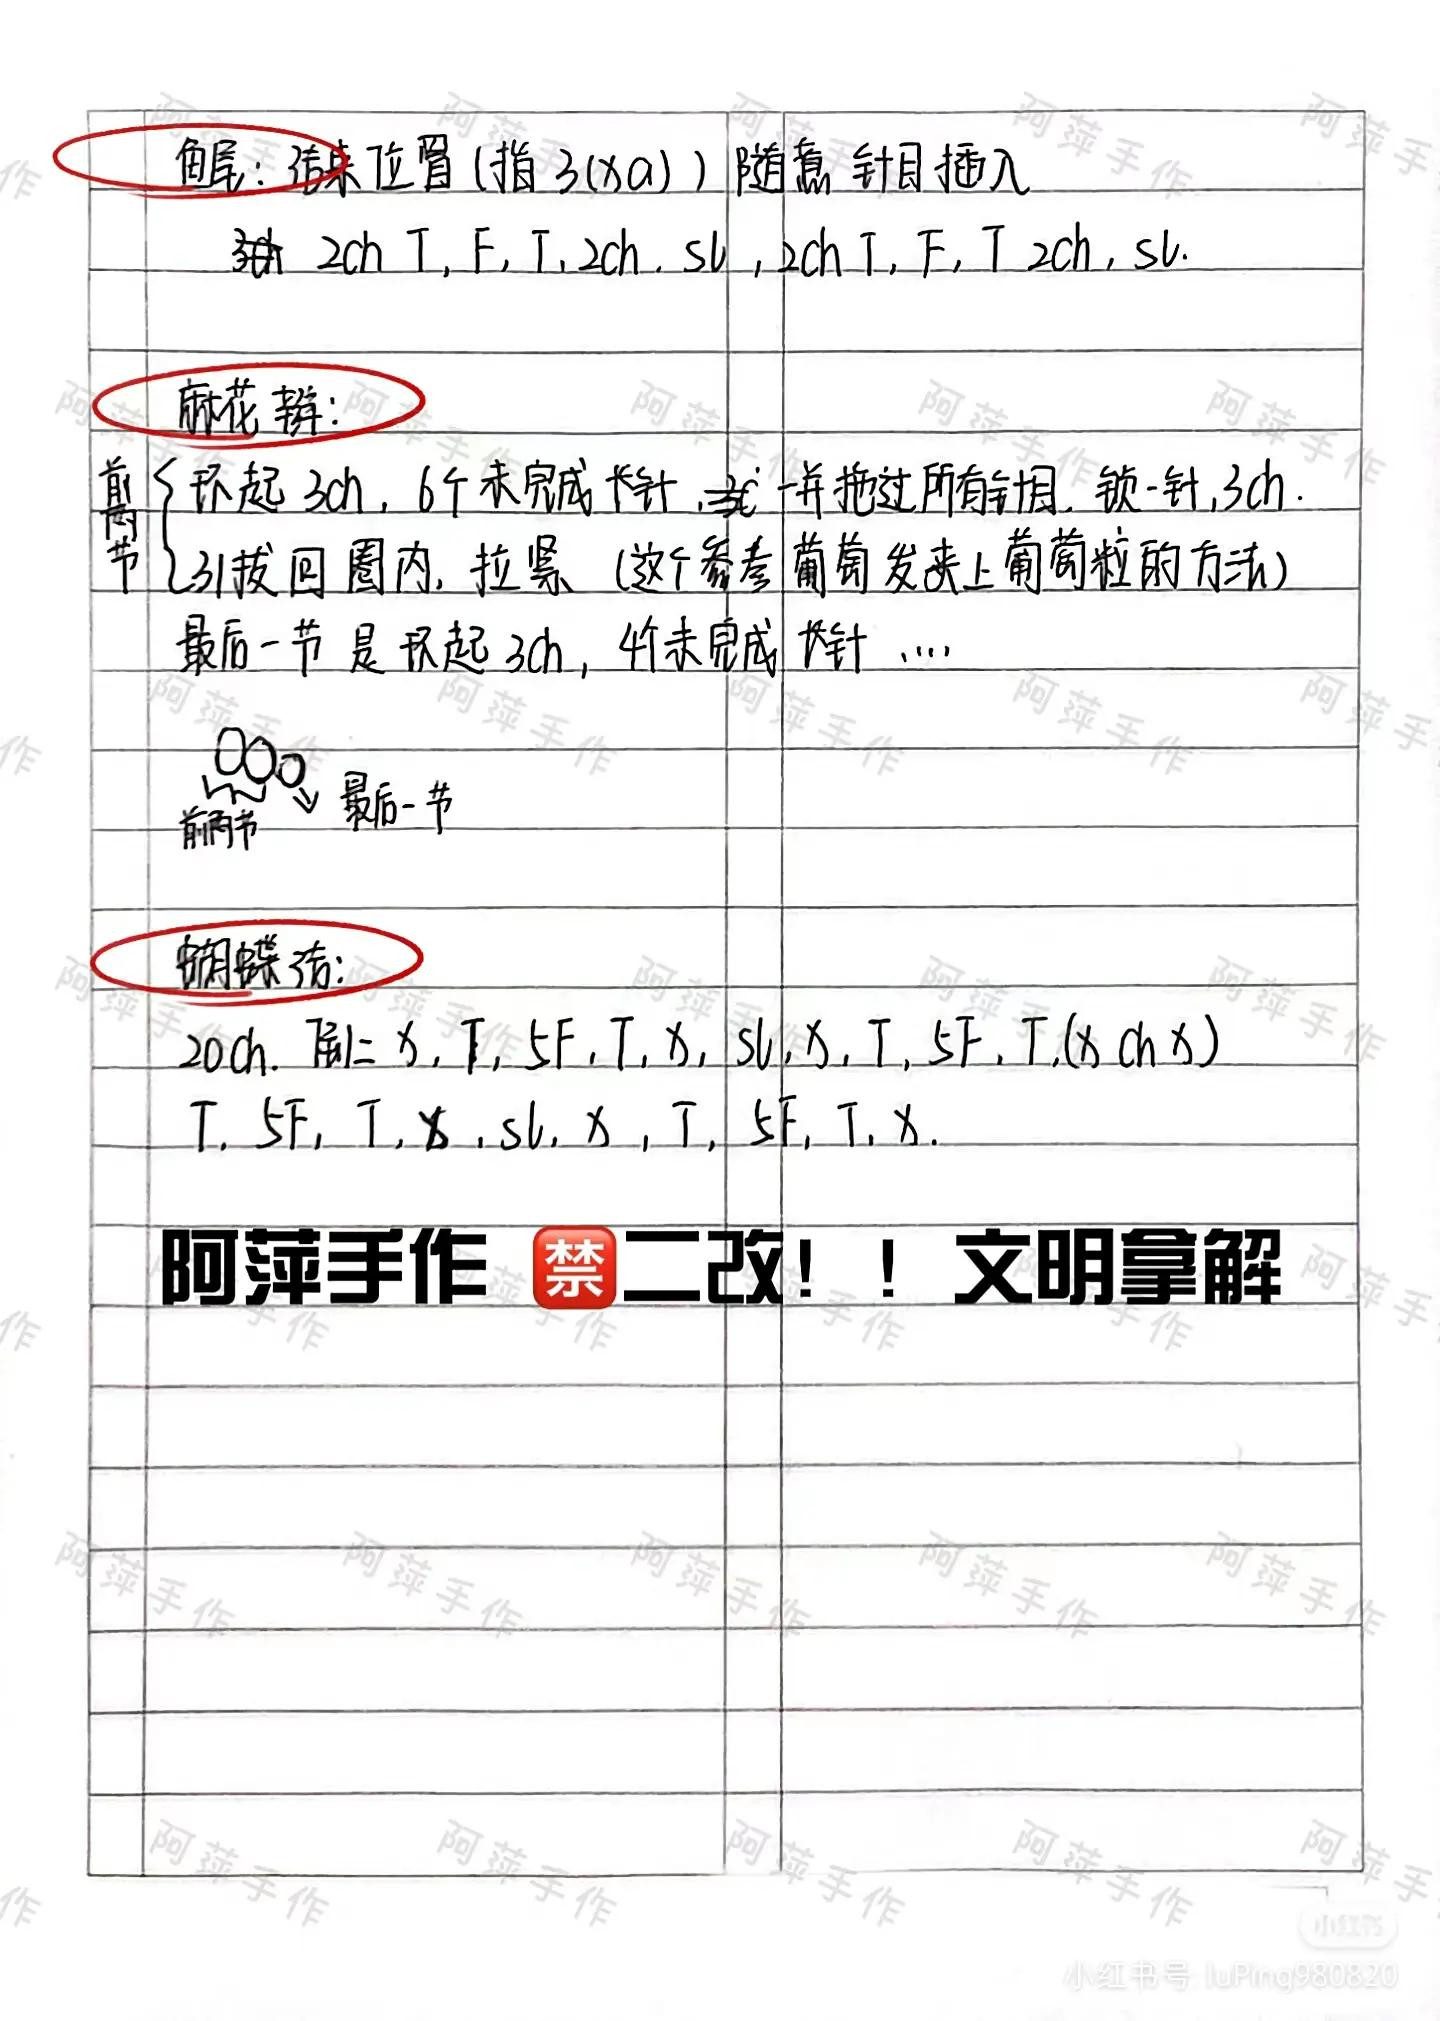 鱼尾：结束位置（指3(xa)）随意针目插入
2ch T, F, T, 2ch. sl, 2ch T, F, T 2ch, sl.
麻花辫：
前两节
环起3ch, 6个未完成长针, 一并拖过所有针目. 锁一针, 3ch.
引拔回圈内, 拉紧（这个参考葡萄发夹上葡萄粒的方法）
最后一节是环起3ch, 4个未完成长针....
前两节
最后一节
蝴蝶结：
20ch. 倒二 x, T, 5F, T, x, sl, x, T, 5F, T, (x ch x)
T, 5F, T, x, sl, x, T, 5F, T, x.
阿萍手作 禁二改！！文明拿解
小红书
小红书号: luPing980820
阿萍手作